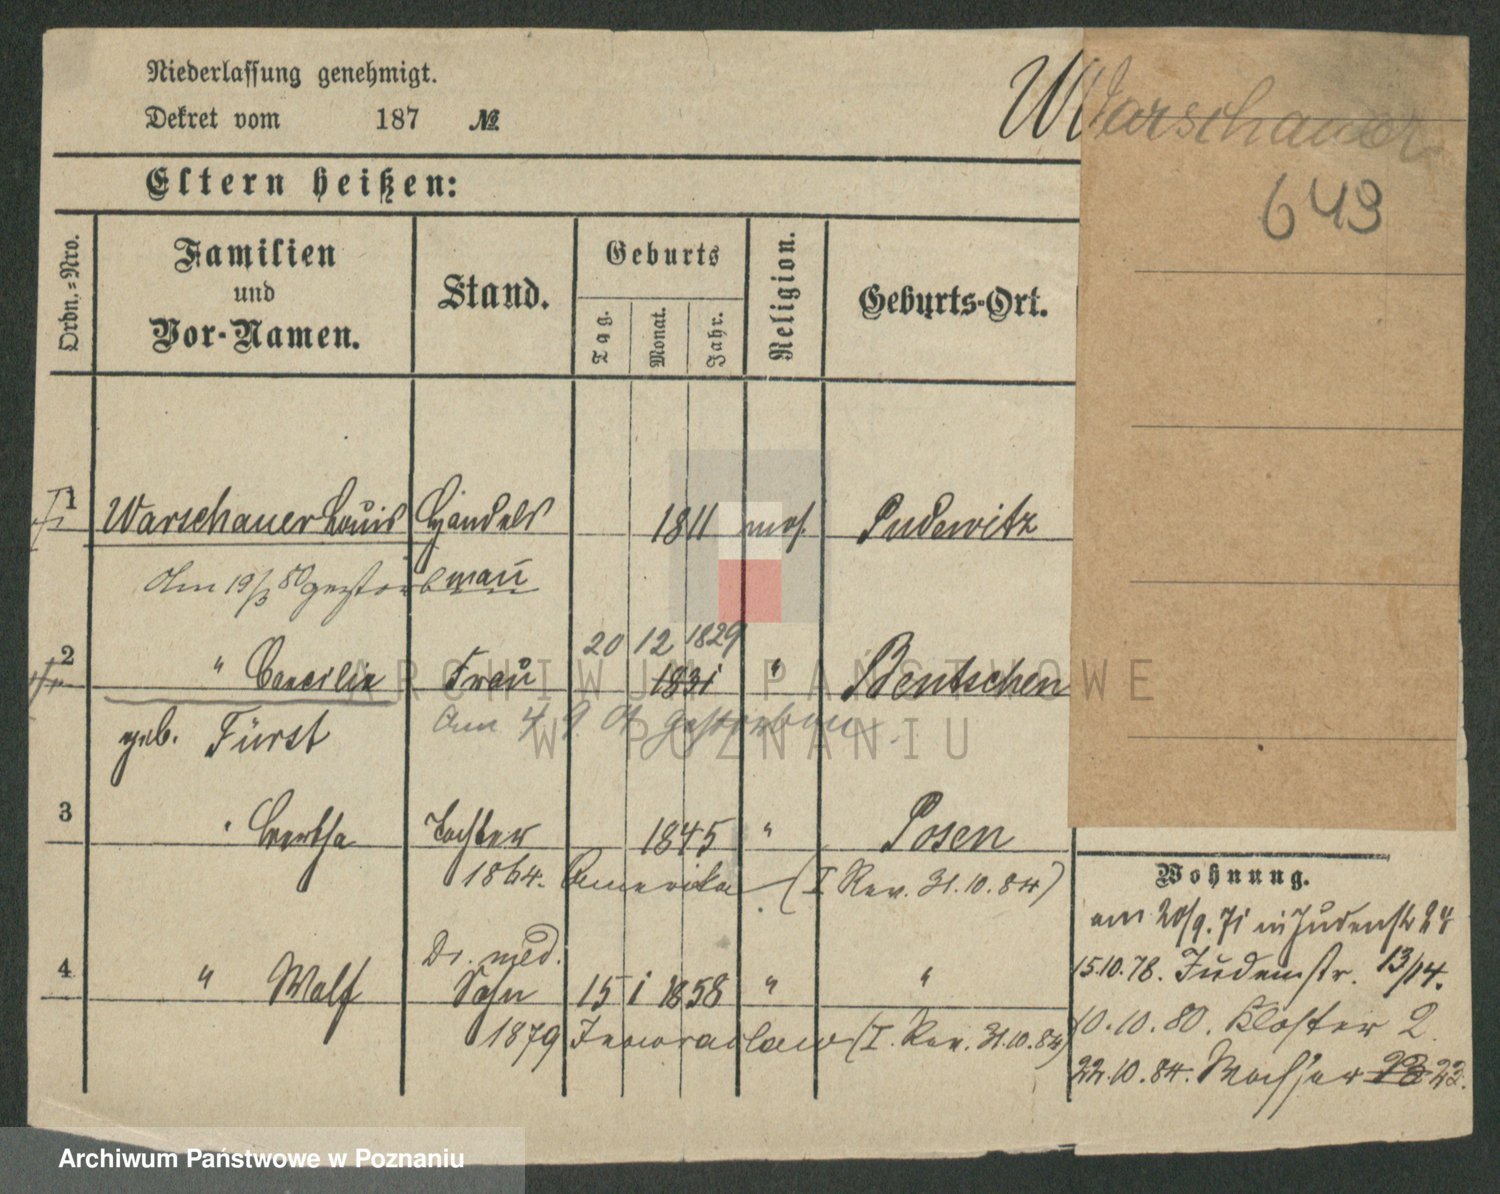 Niederlassung genehmigt.
Dekret vom 187 №
Warschauer
643
Eltern heißen:
Ordn.=Nro.
Familien
und
Vor-Namen.
Stand.
Geburts
Tag.
Monat.
Jahr.
Religion.
Geburts-Ort.
1 Warschauer Louis Handels 1811 mos. Pudewitz
Am 19/3 80 gestorb mañ
20 12 1829
2 " Caecilie Frau 1831 " Bentschen
geb. Fürst Am 4. 9. 01 gestorben
3 " Bertha Tochter 1845 " Posen
1864. Amerika (I Rev. 31.10.84)
Dr. med.
4 " Wolf Sohn 15 1 1858 " "
1879 Inowraclaw (I. Rev. 31.10.84)
Wohnung.
am 20/9. 71 in Judenstr 24
15.10.78. Judenstr. 13/14.
10.10.80. Kloster 2
22.10.84. 23.
ARCHIWUM PAŃSTWOWE
W POZNANIU
Archiwum Państwowe w Poznaniu